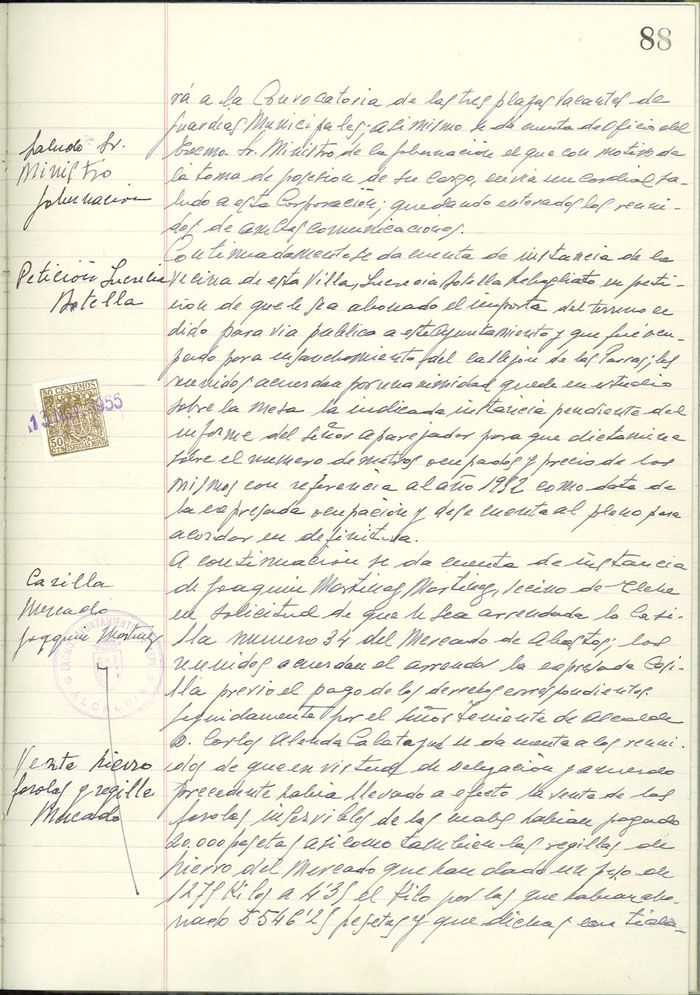 88
rá a la Convocatoria de las tres plazas vacantes de
Guardias Municipales; asimismo se da cuenta de Oficio del
Excmo Sr. Ministro de la Gobernación el que con motivo de
la toma de posesion de su cargo, envia un cordial sa-
ludo a esta Corporación; quedando enterados los reuni-
dos de ambas comunicaciones.
Saludo Sr.
Ministro
Gobernacion
Continuadamente se da cuenta de instancia de la
vecina de esta Villa, Lucrecia Botella en peti-
cion de que le sea abonado el importe del terreno ce
dido para via publica a este Ayuntamiento y que fué ocu-
pado para ensanchamiento del callejon de las Parras; los
reunidos acuerdan por unanimidad quede en estudio
sobre la mesa la indicada instancia pendiente del
informe del Señor Aparejador para que dictamine
sobre el numero de metros ocupados y precio de los
mismos con referencia al año 1932 como data de
la expresada ocupación y dese cuenta al pleno para
acordar en definitiva.
Petición Lucrecia
Botella
50 CENTIMOS
50
13 955
A continuación se da cuenta de instancia
de Joaquin Martinez Martinez, vecino de Elche
en solicitud de que le sea arrendada la Casi-
lla numero 34 del Mercado de Abastos; los
reunidos acuerdan el arrendar la expresada Casi-
lla previo el pago de los derechos correspondientes.
Casilla
Mercado
Joaquin Martinez
AYUNTAMIENTO
ALCALDIA
Seguidamente por el Señor Teniente de Alcalde
D. Carlos Alenda Calatayud se da cuenta a los reuni-
dos de que en virtud de delegación y acuerdo
precedente habia llevado a efecto la venta de las
farolas inservibles de las cuales habian pagado
20.000 pesetas asi como tambien las regillas de
hierro del Mercado que han dado un peso de
1275 Kilos a 4'35 el Kilo por las que habian abo-
nado 5546'25 pesetas y que dichas cantida-
Venta hierro
farolas y regilla
Mercado